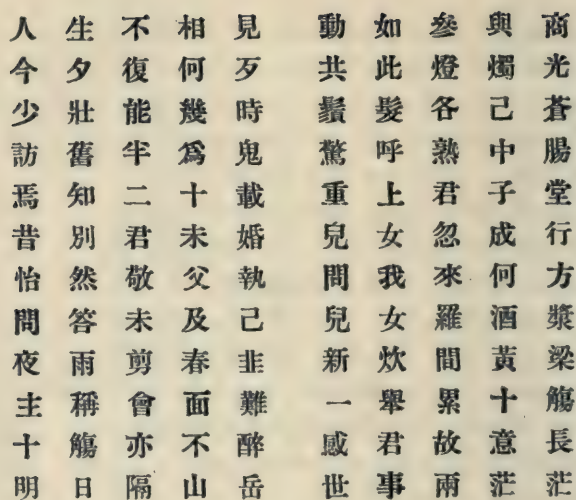 人生不相見 動如參與商
今夕復何夕 共此燈燭光
少壯能幾時 鬢髮各己蒼
訪舊半爲鬼 驚呼熱中腸
焉知二十載 重上君子堂
昔別君未婚 兒女忽成行
怡然敬父執 問我來何方
問答未及己 兒女羅酒漿
夜雨剪春韭 新炊間黃梁
主稱會面難 一舉累十觴
十觴亦不醉 感君故意長
明日隔山岳 世事兩茫茫